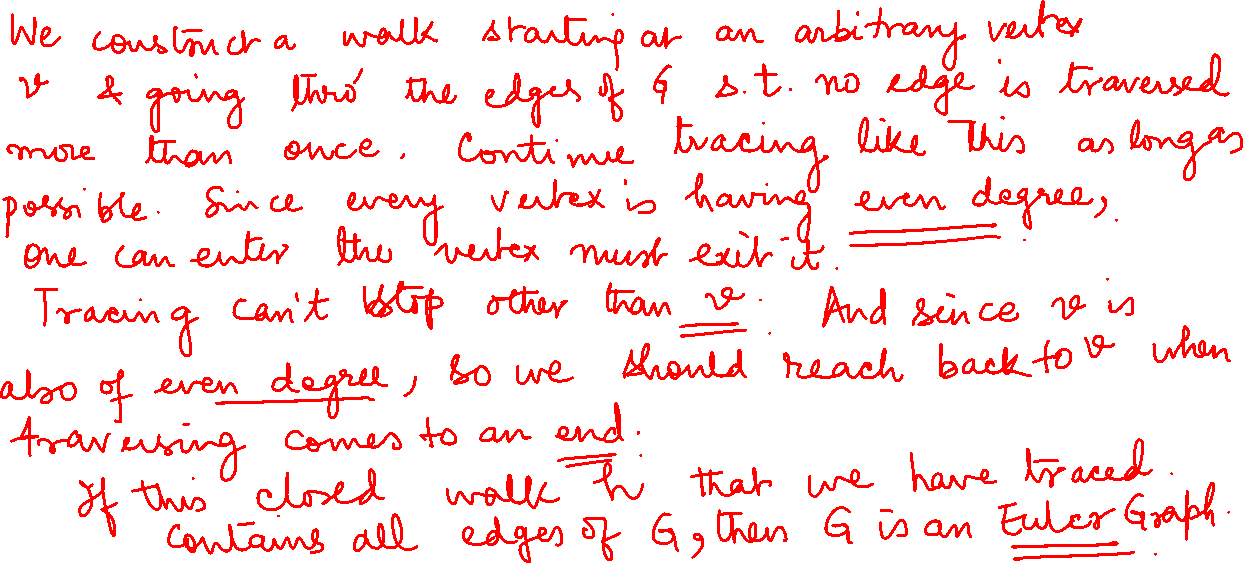 We construct a walk starting at an arbitrary vertex
v & going thro' the edges of G s.t. no edge is traversed
more than once. Continue tracing like this as long as
possible. Since every vertex is having even degree,
one can enter the vertex must exit it.
Tracing can't stop other than v. And since v is
also of even degree, so we should reach back to v when
traversing comes to an end.
If this closed walk h that we have traced
contains all edges of G, then G is an Euler Graph.